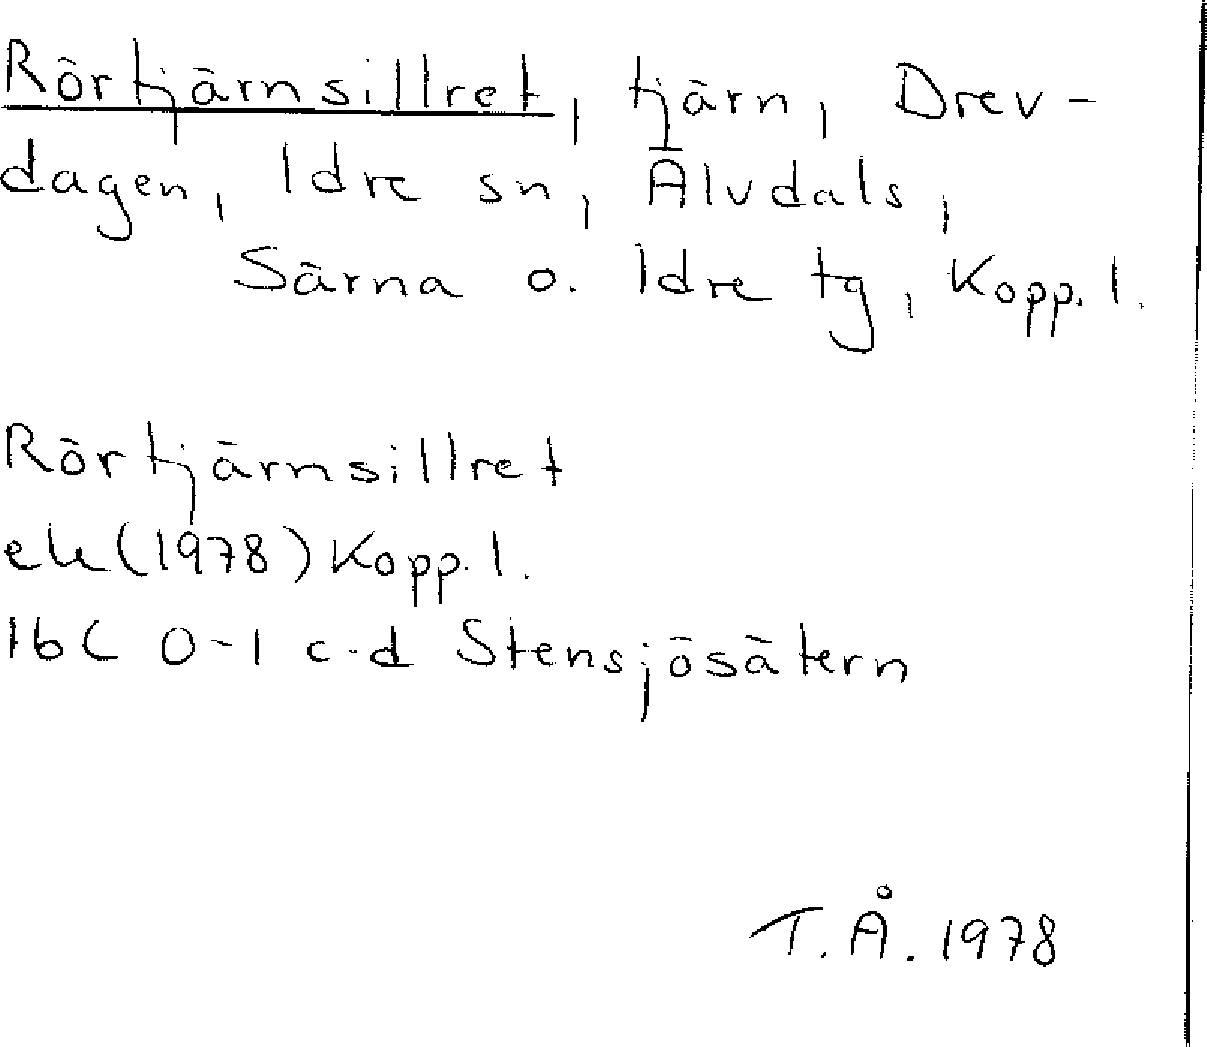 Rörtjärnsillret, tjärn, Drev-
dagen, Idre sn, Älvdals,
Särna o. Idre tg, Kopp. l.
Rörtjärnsillret
ek (1978) Kopp. l.
16C 0-1 c-d Stensjösätern
T. Å. 1978